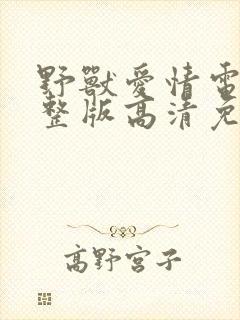 野獸愛情電
整版高清免
高野宮子